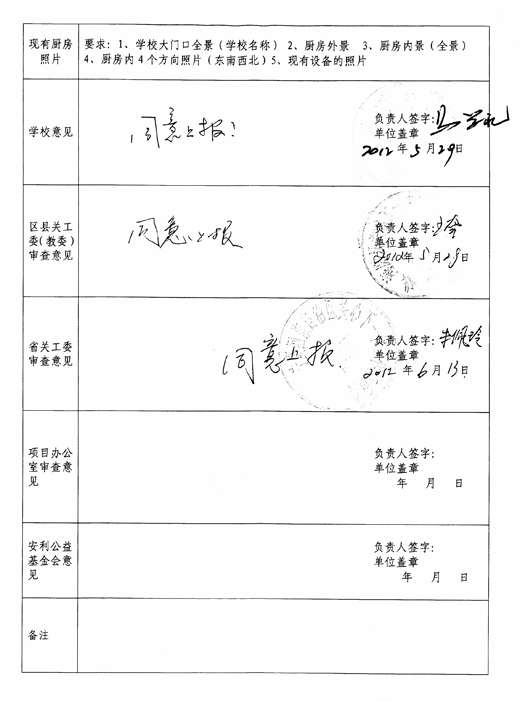 现有厨房
照片
要求：1、学校大门口全景（学校名称） 2、厨房外景 3、厨房内景（全景）
4、厨房内4个方向照片（东南西北）5、现有设备的照片
学校意见
同意上报！
负责人签字：
单位盖章
2012年5月29日
区县关工
委（教委）
审查意见
同意上报
负责人签字：
单位盖章
2012年5月29日
省关工委
审查意见
同意上报
负责人签字：李佩玲
单位盖章
2012年6月13日
项目办公
室审查意
见
负责人签字：
单位盖章
年 月 日
安利公益
基金会意
见
负责人签字：
单位盖章
年 月 日
备注